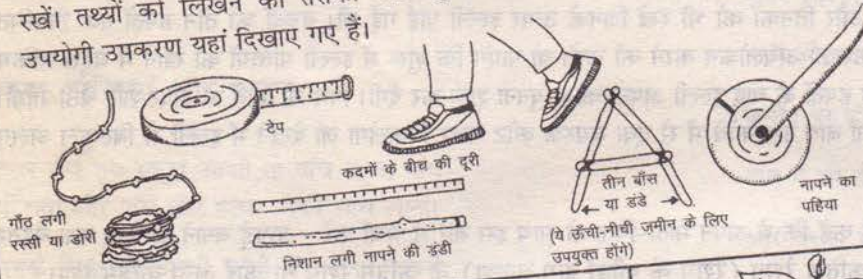 रखें। तथ्यों को लिखने की
उपयोगी उपकरण यहां दिखाए गए हैं।
टेप
कदमों के बीच की दूरी
गाँठ लगी
रस्सी या डोरी
निशान लगी नापने की डंडी
तीन बाँस
या डंडे
(ये ऊँची-नीची ज़मीन के लिए
उपयुक्त होंगे)
नापने का
पहिया